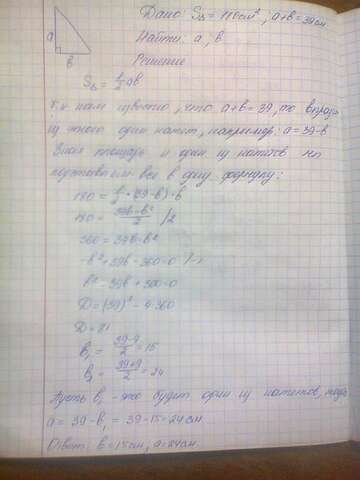 a
в
Дано: S∆ = 180см²; a+в = 39см
Найти: a, в
Решение
S∆ = 1/2 aв
т.к нам известно, что a+в = 39, то выраз
из этого один катет, например: a = 39-в
Зная площадь и один из катетов
подставим все в одну формулу:
180 = 1/2 · (39-в) · в
180 = 39в-в²/2 /2
360 = 39в-в²
-в²+39в-360=0 /-1
в²-39в+360=0
D = (39)²-4·360
D = 81
в₁ = 39-9/2 = 15
в₂ = 39+9/2 = 24
Пусть в₁ - это будет один из катетов, тогда
a = 39-в₁ = 39-15 = 24см
Ответ: в = 15см, a = 24см.